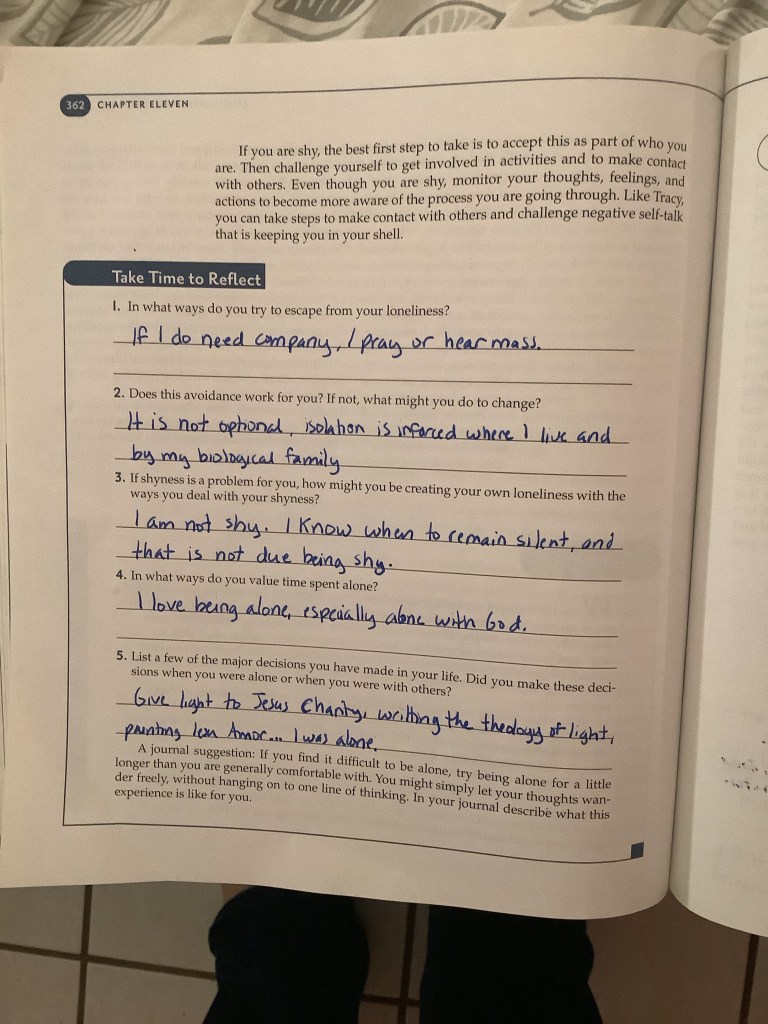 362 CHAPTER ELEVEN
If you are shy, the best first step to take is to accept this as part of who you
are. Then challenge yourself to get involved in activities and to make contact
with others. Even though you are shy, monitor your thoughts, feelings, and
actions to become more aware of the process you are going through. Like Tracy,
you can take steps to make contact with others and challenge negative self-talk
that is keeping you in your shell.
Take Time to Reflect
1. In what ways do you try to escape from your loneliness?
If I do need company, I pray or hear mass.
2. Does this avoidance work for you? If not, what might you do to change?
It is not optional, isolation is inforced where I live and
by my biological family
3. If shyness is a problem for you, how might you be creating your own loneliness with the
ways you deal with your shyness?
I am not shy. I know when to remain silent, and
that is not due being shy.
4. In what ways do you value time spent alone?
I love being alone, especially alone with God.
5. List a few of the major decisions you have made in your life. Did you make these deci-
sions when you were alone or when you were with others?
Give light to Jesus Charity, writting the theology of light,
painting Amor... I was alone.
A journal suggestion: If you find it difficult to be alone, try being alone for a little
longer than you are generally comfortable with. You might simply let your thoughts wan-
der freely, without hanging on to one line of thinking. In your journal describe what this
experience is like for you.